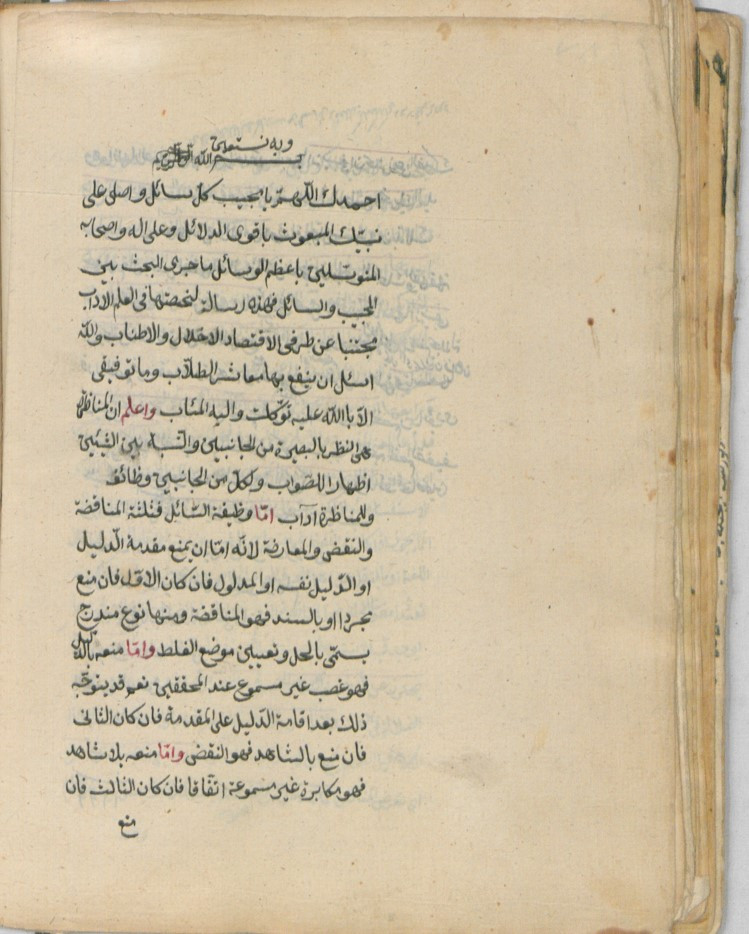 وبه نستعين
بسم الله الرحمن الرحيم
احمدك اللهم يا مجيب كل سائل واصلى على
نبيك المبعوث باقوى الدلائل وعلى اله واصحابه
المتوسلين باعظم الوسائل ما جرى البحث بين
المجيب والسائل فهذه رسالة لخصتها فى العلم الاداب
مجتنبا عن طرفى الاقتصاد الاخلال والاطناب والله
اسئل ان ينفع بها معاشر الطلاب وما توفيقى
الا بالله عليه توكلت واليه المئاب واعلم ان المناظرة
هى النظر بالبصيرة من الجانبين والنسبة بين الشيئين
اظهارا للصواب ولكل من الجانبين وظائف
وللمناظرة آداب امّا وظيفة السائل فثلثة المناقضة
والنقض والمعارضة لانه اما ان يمنع مقدمة الدليل
او الدليل نفسه او المدلول فان كان الاول فان منع
مجردا او بالسند فهو المناقضة ومنها نوع مندرج
يسمى بالحل وتعيين موضع الغلط وامّا منعه بالدليل
فهو غصب غير مسموع عند المحققين نعم قد يتوجه
ذلك بعد اقامة الدليل على المقدمة فان كان الثانى
فان منع بالشاهد فهو النقض وامّا منعه بلا شاهد
فهو مكابرة غير مسموعة اتفاقا فان كان الثالث فان
منع